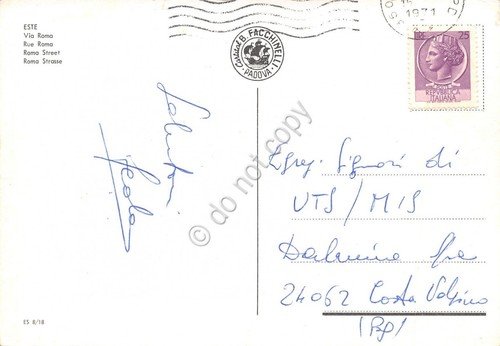 ESTE
Via Roma
Rue Roma
Roma Street
Roma Strasse
B. FACCHINELLI
PADOVA
1971
25
REPUBBLICA
ITALIANA
Saluti
Egreg. Signori di
UTS/MIS
Dalmine Spa
24062 Costa Volpino
(Bg)
do not copy
ES 8/18